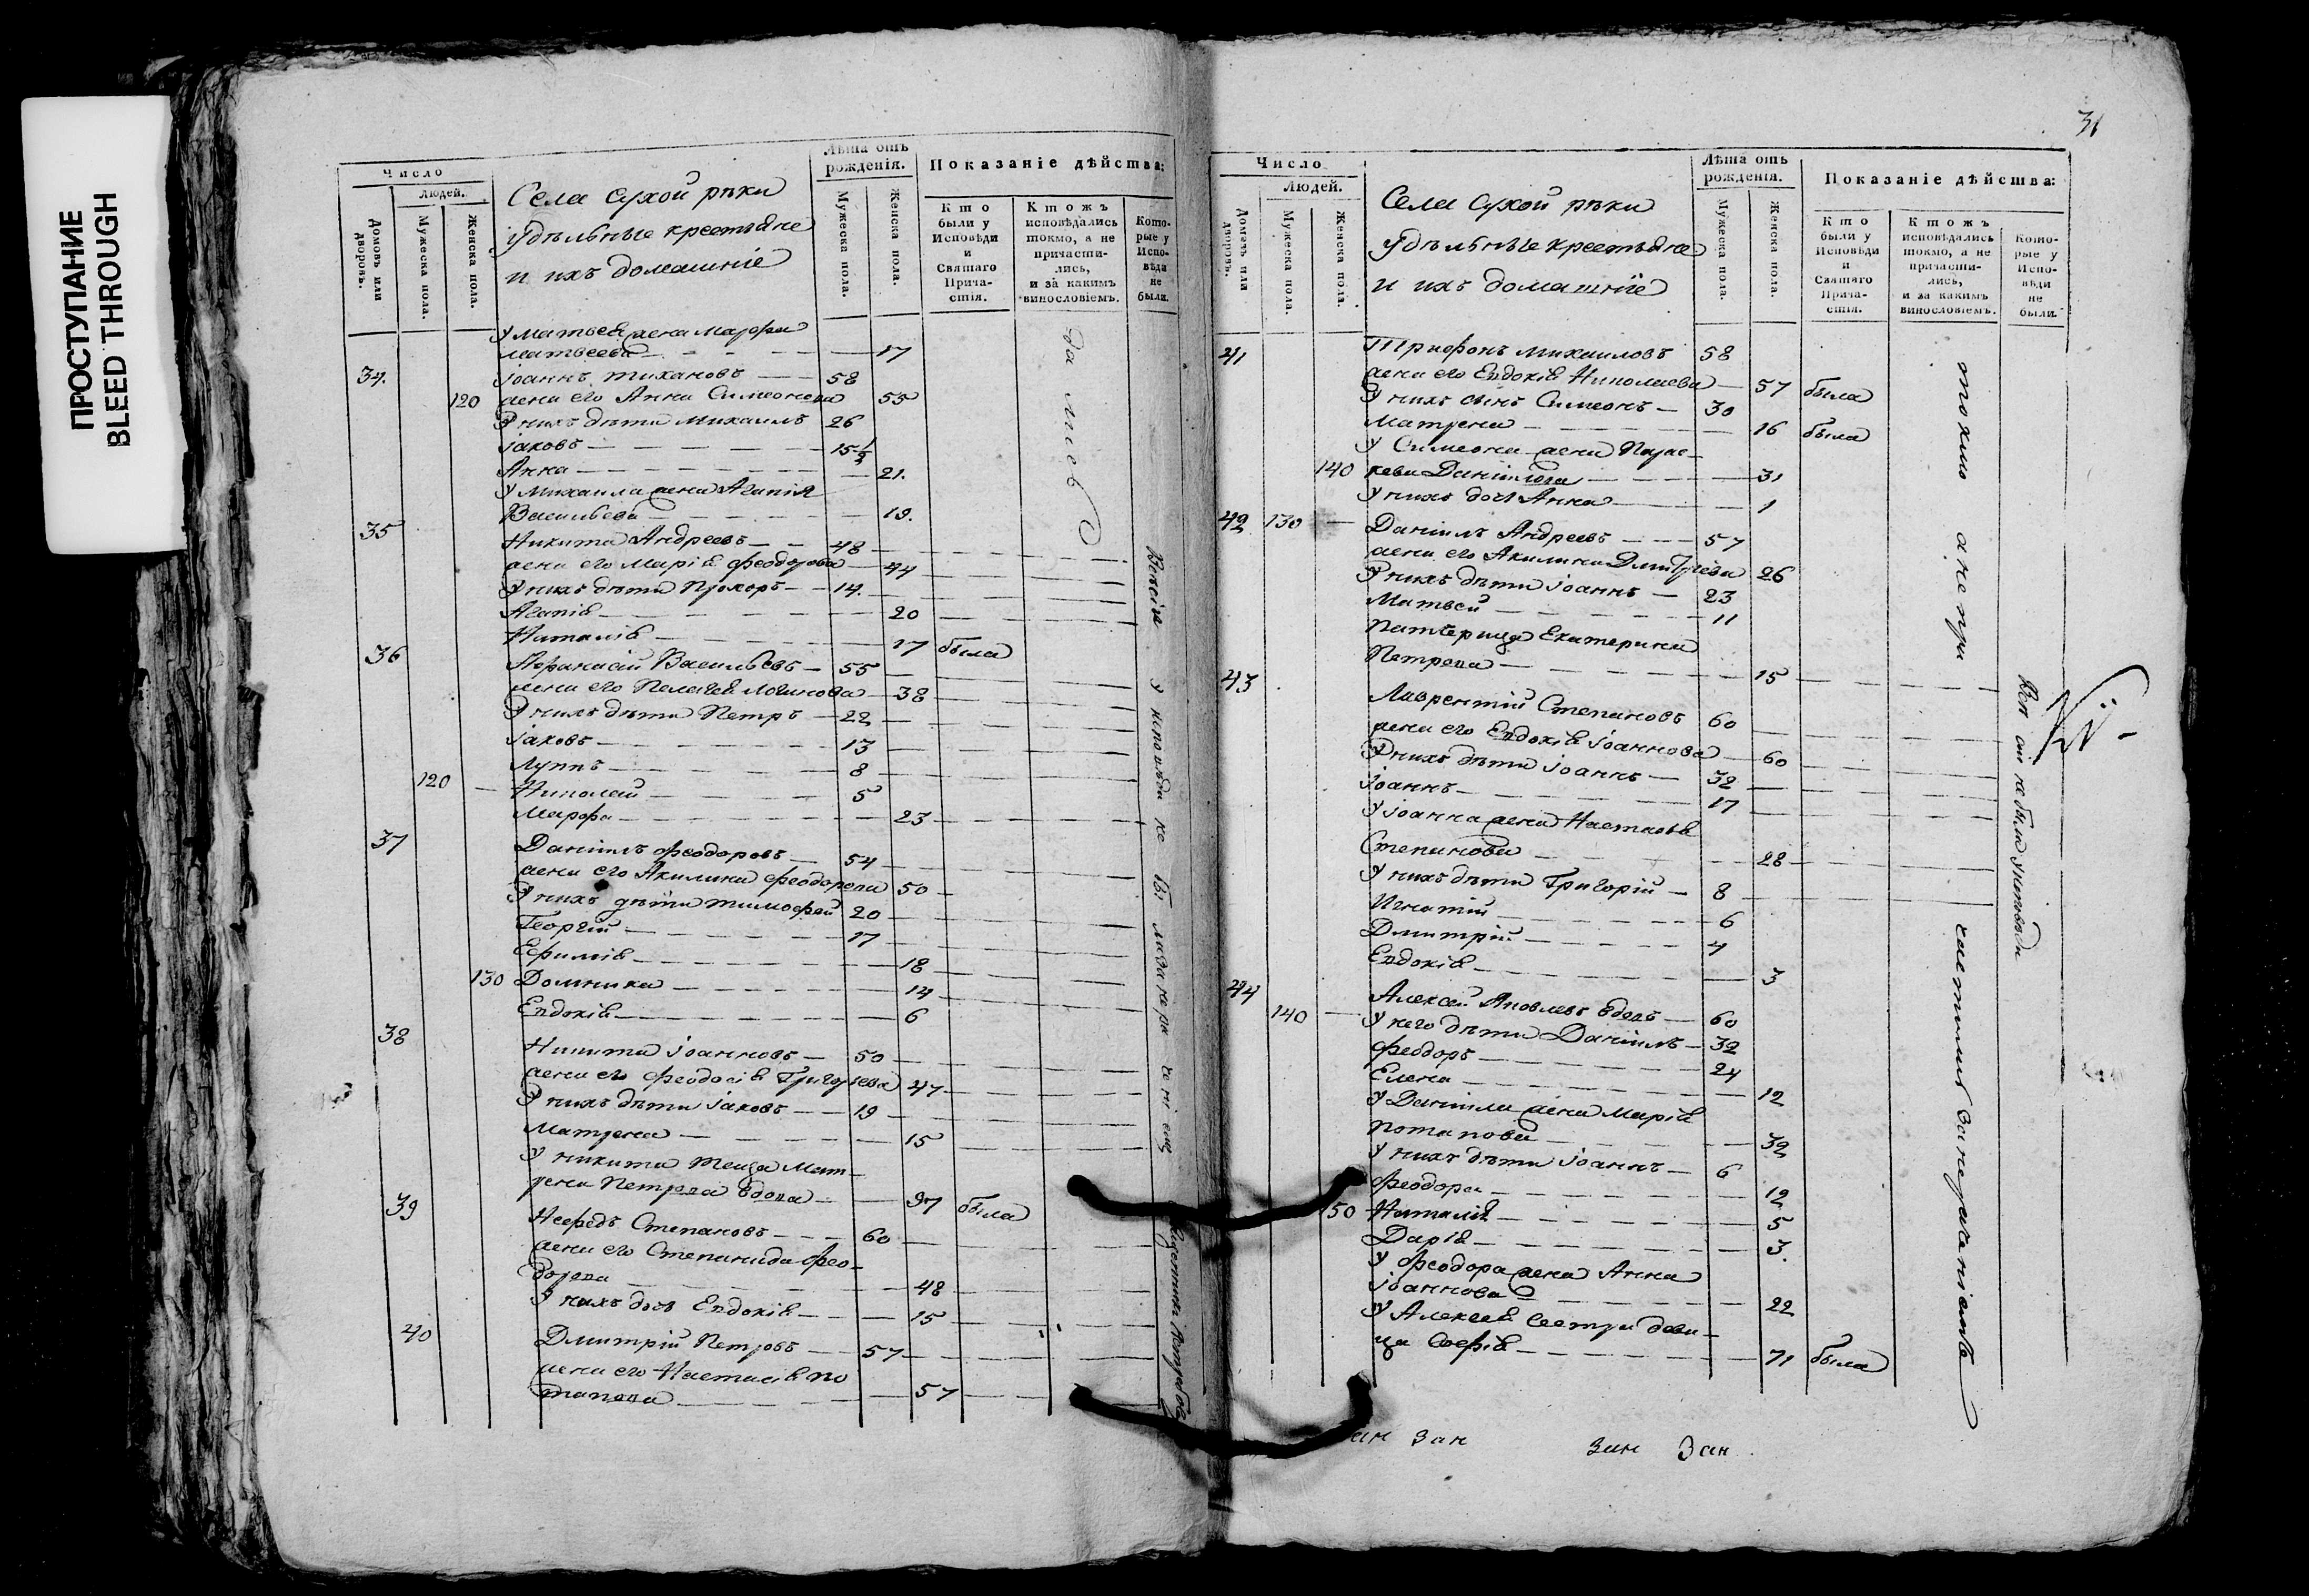 ПРОСТУПАНИЕ
BLEED THROUGH
Число
Людей.
Домовъ или дворовъ.
Мужеска пола.
Женска пола.
Села Сухой рѣки
удѣльные крестьяне
и ихъ домашніе
Лѣта отъ рожденія.
Мужеска пола.
Женска пола.
Показаніе дѣйства:
Кто были у Исповѣди и Святаго Прича-стія.
Ктожъ исповѣдались токмо, а не причасти-лись, и за какимъ винословіемъ.
Кото-рые у Испо-вѣди не были.
У Матвея жена Марфа
Матвеева 17
34. Іоаннъ Тихановъ 58
120 жена его Анна Симеонова 55
У нихъ дѣти Михаилъ 26
Іаковъ 15 1/2
Анна 21.
У Михаила жена Агапія
Васильева 19.
35 Никита Андреевъ 48
жена его Марія Феодорова 44
У нихъ дѣти Прохоръ 14.
Агапія 20
Наталія 17 была
36 Афанасій Васильевъ 55
жена его Пелагея Логинова 38
У нихъ дѣти Петръ 22
Іаковъ 13
Луппъ 8
120 Николай 5
Марфа 23
37 Даніилъ Феодоровъ 54
жена его Акилина Феодорова 50
У нихъ дѣти Тимофей 20
Георгій 17
Ефимія 18
130 Домника 14
Евдокія 6
38 Никита Іоанновъ 50
жена его Феодосія Григорьева 47
У нихъ дѣти Іаковъ 19
Матрена 15
У Никиты теща Мат-
рена Петрова вдова 97 была
39 Нефедъ Степановъ 60
жена его Степанида Фео-
дорова 48
У нихъ дочь Евдокія 15
40 Дмитрій Петровъ 57
жена его Настасія По
тапова 57
у исповѣди не
31
Число
Людей.
Домовъ или дворовъ.
Мужеска пола.
Женска пола.
Села Сухой рѣки
удѣльные крестьяне
и ихъ домашніе
Лѣта отъ рожденія.
Мужеска пола.
Женска пола.
Показаніе дѣйства:
Кто были у Исповѣди и Святаго Прича-стія.
Ктожъ исповѣдались токмо, а не причасти-лись, и за какимъ винословіемъ.
Кото-рые у Испо-вѣди не были.
41 Трифонъ Михаиловъ 58
жена его Евдокія Николаева 57 была
У нихъ сынъ Симеонъ 30
Матрена 16 была
У Симеона жена Парас-
140 кева Даніилова 31
У нихъ дочь Анна 1
42 130 Даніилъ Андреевъ 57
жена его Акилина Дмитріева 26
У нихъ дѣти Іоаннъ 23
Матвей 11
Падчерица Екатерина
Петрова 15
43 Лаврентій Степановъ 60
жена его Евдокія Іоаннова 60
У нихъ дѣти Іоаннъ 32
Іоаннъ 17
У Іоанна жена Настасья
Степанова 28
У нихъ дѣти Григорій 8
Игнатій 6
Дмитрій 4
Евдокія 3
44 Алексей Яковлевъ вдовъ 60
140 У него дѣти Даніилъ 32
Феодоръ 24
Елена 12
У Даніила жена Марія
Потапова 32
У нихъ дѣти Іоаннъ 6
Феодора 12
150 Наталія 5
Дарія 3.
У Феодора жена Анна
Іоаннова 22
У Алексея сестра деви-
ца Софія 71 была
токмо а не при